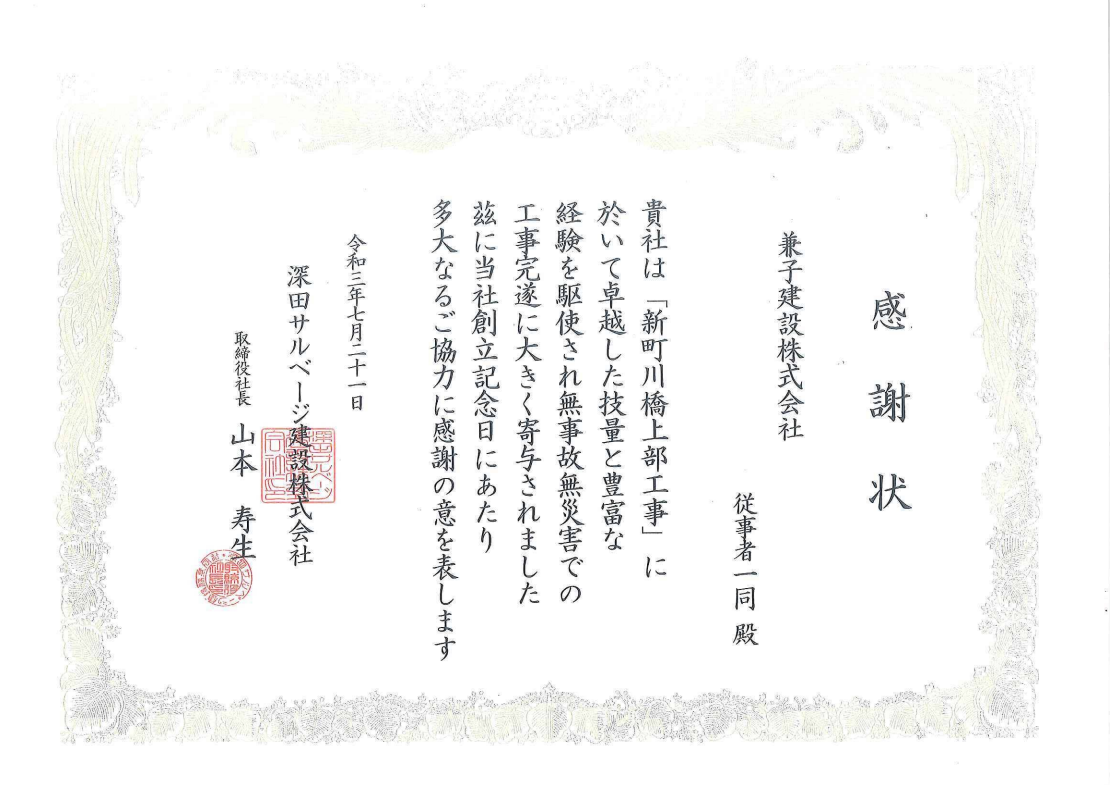 感謝状
兼子建設株式会社
従事者一同 殿
貴社は「新町川橋上部工事」に
於いて卓越した技量と豊富な
経験を駆使され無事故無災害での
工事完遂に大きく寄与されました
茲に当社創立記念日にあたり
多大なるご協力に感謝の意を表します
令和三年七月二十一日
深田サルベージ建設株式会社
取締役社長 山本 寿生